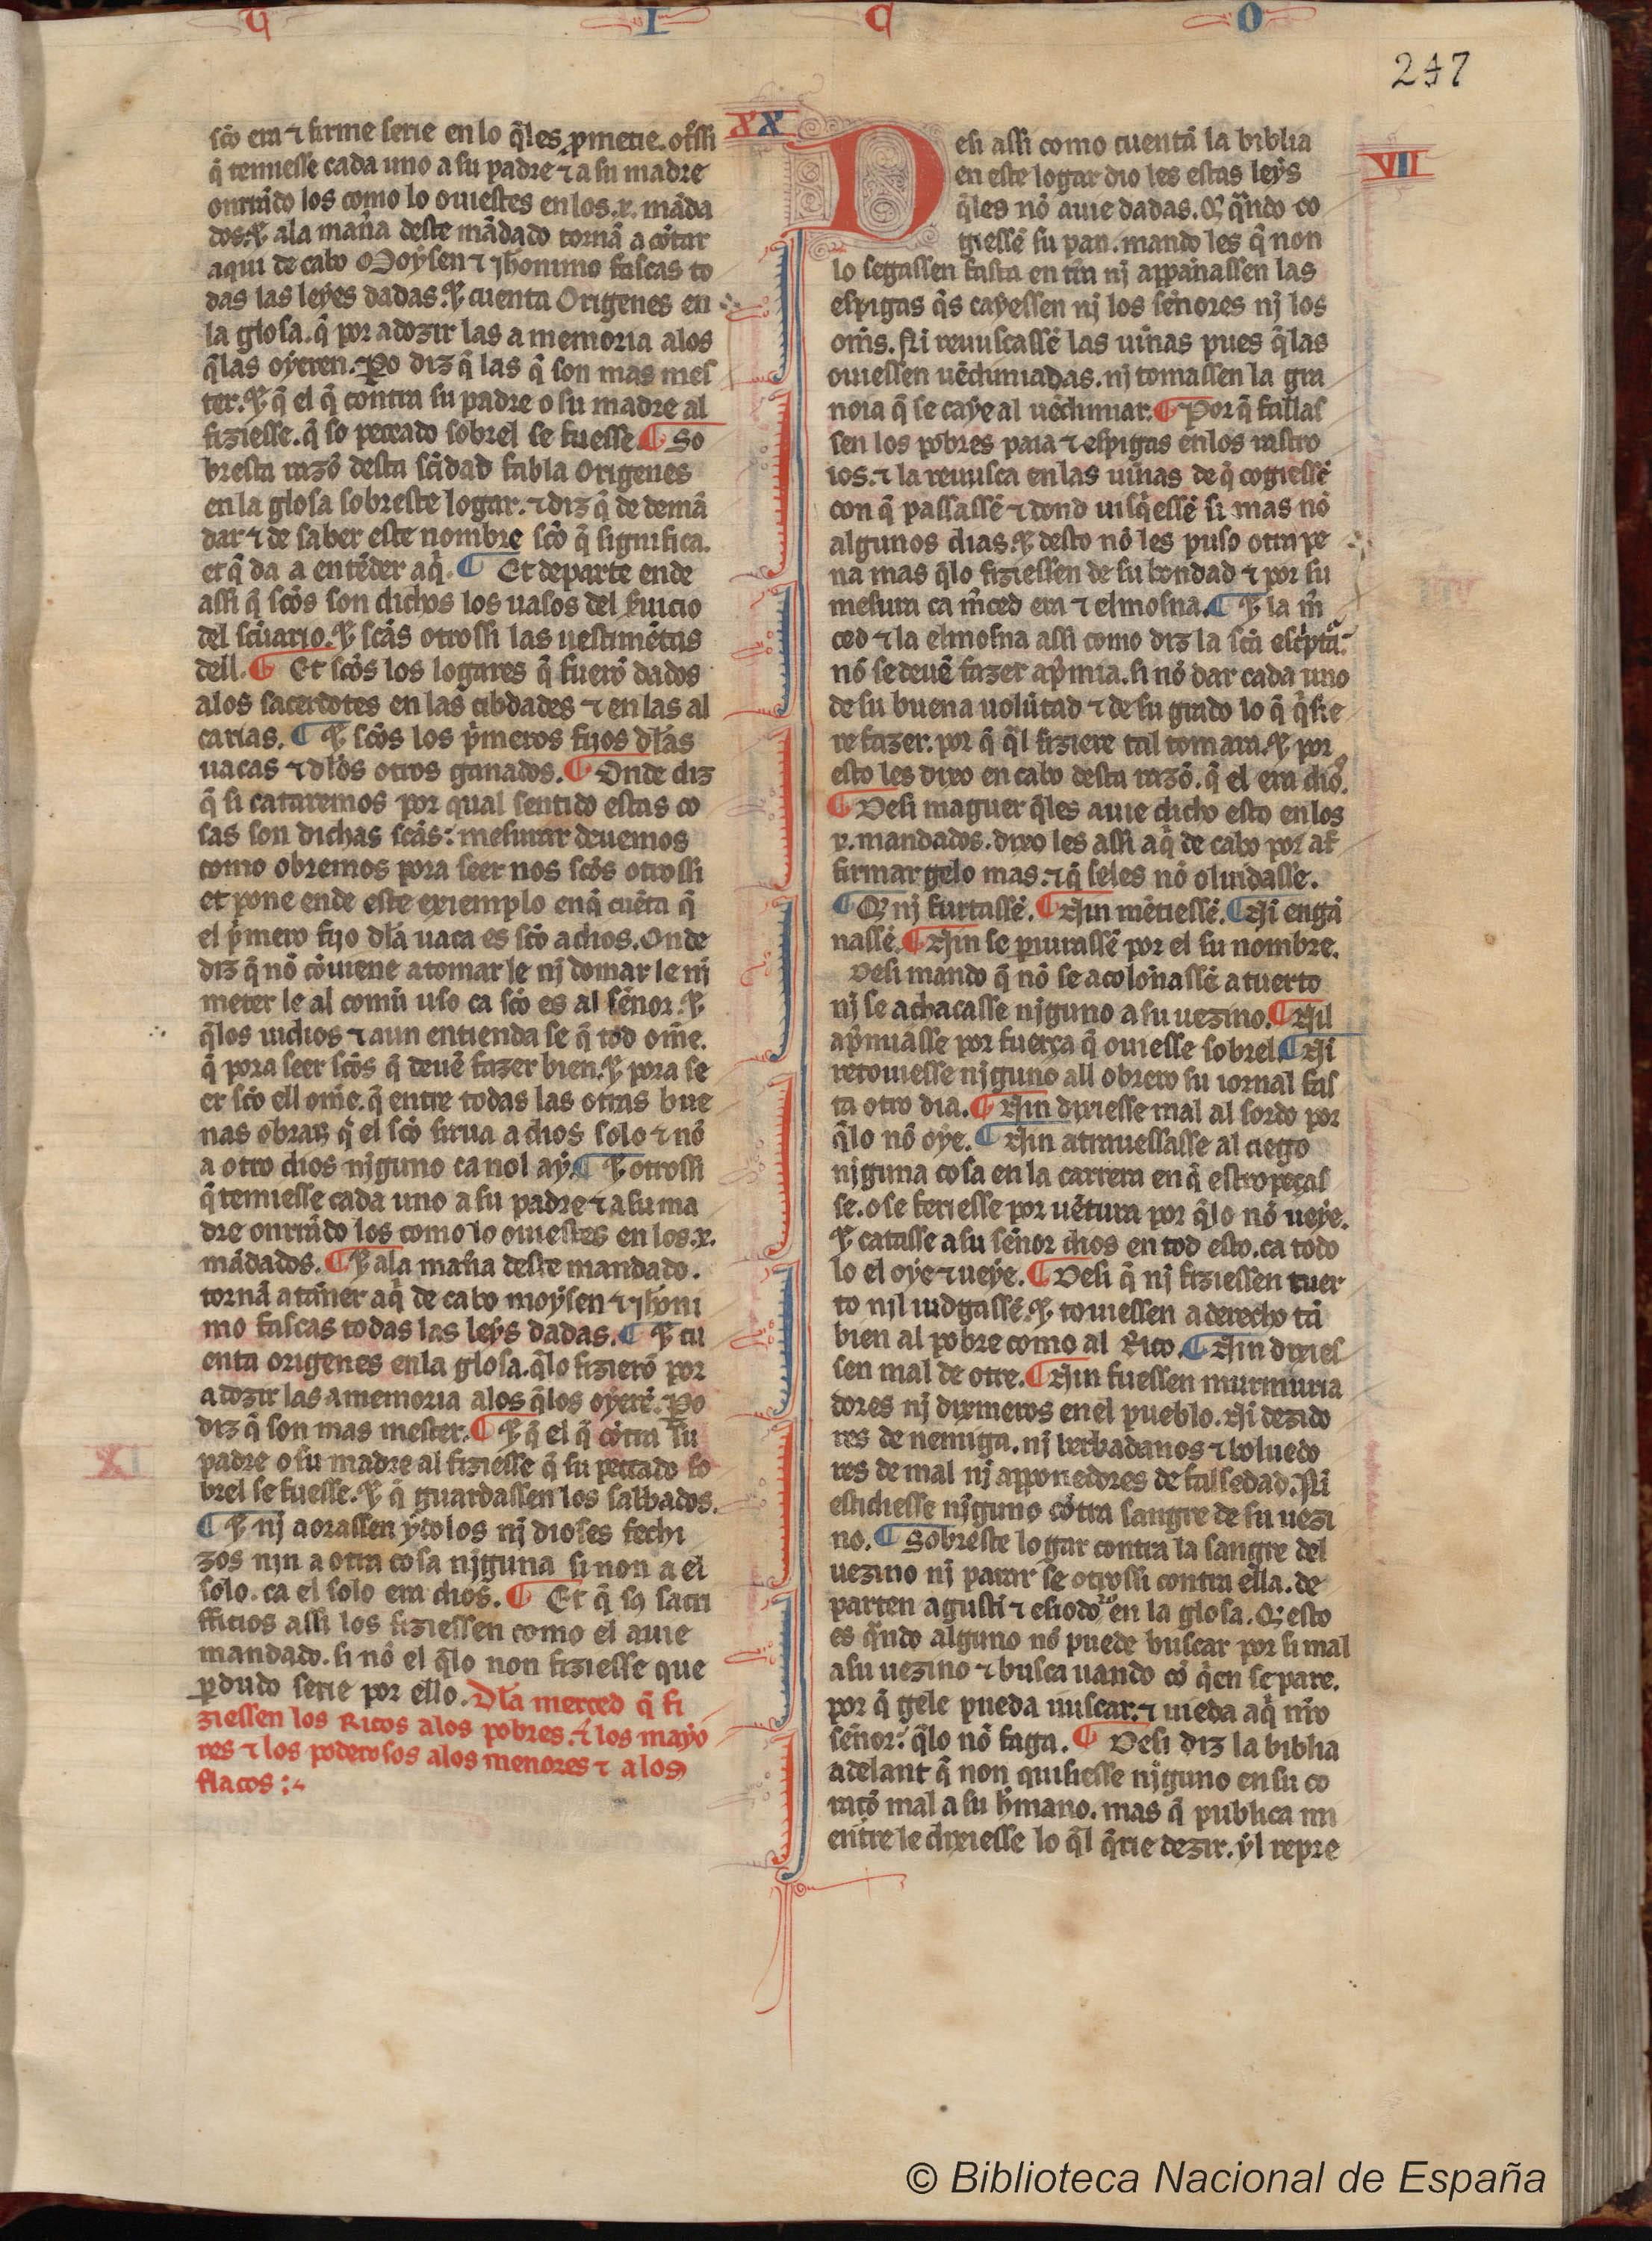 U I C O
247
sc̃o era ⁊ firme serie en lo q̃les ꝓmetie. otr̃ssi
q̃ temiesse cada uno a su padre ⁊ a su madre
onrrãdo los como lo ouiestes en los .x. mãda
dos. ⁊ ala mañ̃a deste mãdado tornã a cõtar
aqui de cabo Moysen ⁊ jheronimo fascas to
das las leyes dadas. ⁊ cuenta Origenes en
la glosa. q̃ por adozir las a memoria alos
q̃las oyeren. Po diz q̃ las q̃ son mas mes
ter. ⁊ q̃ el q̃ contra su padre o su madre al
fiziesse. q̃ so peccado sobrel se fuesse. ¶ So
bresta razõ desta sc̃idad fabla Origenes
en la glosa sobreste logar. ⁊ diz q̃ de demã
dar ⁊ de saber este nombre sc̃o q̃ significa.
et q̃ da a entẽder aq̃. ¶ Et departe ende
assi q̃ sc̃os son dichos los uasos del s̃uicio
del sc̃uario. ⁊ sc̃as otrossi las uestimẽtas
dell. ¶ Et sc̃os los logares q̃ fuerõ dados
alos sacerdotes en las cibdades ⁊ en las al
carias. ¶ ⁊ sc̃os los p̃meros fijos dlãs
uacas ⁊ dlõs otros ganados. ¶ Onde diz
q̃ si cataremos por qual sentido estas co
sas son dichas sc̃as: mesurar deuemos
como obremos pora seer nos sc̃os otrossi
et pone ende este exiemplo en q̃ cuẽta q̃
el p̃mero fijo dlã uaca es sc̃o a dios. Onde
diz q̃ nõ cõuiene a tomar le nj domar le nj
meter le al comũ uso ca sc̃o es al señor. ⁊
q̃los iudios ⁊ aun entienda se q̃ tod om̃e.
q̃ pora seer sc̃os q̃ deuẽ fazer bien. ⁊ pora se
er sc̃o ell om̃e. q̃ entre todas las otras bue
nas obras q̃ el sc̃o sirua a dios solo ⁊ nõ
a otro dios njguno ca nol aỹ. ¶ ⁊ otrossi
q̃ temiesse cada uno a su padre ⁊ a su ma
dre onrrãdo los como lo ouiestes en los .x.
mãdados. ¶ ⁊ ala mañ̃a deste mandado.
tornã a tañer aq̃ de cabo moysen ⁊ jhr̃oni
mo fascas todas las leys dadas. ¶ ⁊ cu
enta origenes en la glosa. q̃lo fizierõ por
adozir las a memoria alos q̃los oyerẽ. Po
diz q̃ son mas mester. ¶ ⁊ q̃ el q̃ cõtra su
padre o su madre al fiziesse q̃ su peccado so
brel se fuesse. ⁊ q̃ guardassen los sabbados.
¶ ⁊ nj aorassen ydolos nj dioses fechi
zos njn a otra cosa njguna si non a el
solo. ca el solo era dios. ¶ Et q̃ sq̃ sacri
fficios assi los fiziessen como el auie
mandado. si nõ el q̃lo non fiziesse que
ꝑdudo serie por ello. Dlã merced q̃ fi
ziessen los Ricos alos pobres. ⁊ los mayo
res ⁊ los poderosos alos menores ⁊ alos
flacos :~
XX
VII
Desi assi como cuentã la biblia
en este logar dio les estas leys
q̃les nõ auie dadas. Q̃ q̃ndo co
giessẽ su pan. mando les q̃ non
lo segassen fasta en tr̃ra nj appañassen las
espigas q̃s cayessen nj los señores nj los
om̃s. Ni reuuscassẽ las uiñas pues q̃las
ouiessen uẽdimiadas. nj tomassen la gra
noia q̃ se caye al uẽdimiar. ¶ Por q̃ fallas
sen los pobres paia ⁊ espigas en los rastro
ios. ⁊ la reuusca en las uiñas de q̃ cogiessẽ
con q̃ passassẽ ⁊ dond uisq̃essẽ si mas nõ
algunos dias. ⁊ desto nõ les puso otra pe
na mas q̃lo fiziessen de su bondad ⁊ por su
mesura ca m̃ced era ⁊ elmosna. ¶ ⁊ la m̃
ced ⁊ la elmosna assi como diz la sc̃a esc̃ptã
nõ se deuẽ fazer ap̃mia. si nõ dar cada uno
de su buena uolũtad ⁊ de su grado lo q̃ q̃sie
re fazer. por q̃ q̃l fiziere tal tomara. ⁊ por
esto les dixo en cabo desta razõ. q̃ el era dios.
¶ Desi maguer q̃les auie dicho esto en los
x. mandados. dixo les assi aq̃ de cabo por af
firmar gelo mas. ⁊ q̃ seles nõ oluidasse.
¶ Q̃ nj furtassẽ. ¶ Njn mẽtiessẽ. ¶ Ni engã
nassẽ. ¶ Njn se ꝑiurassẽ por el su nombre.
Desi mando q̃ nõ se acoloñassẽ a tuerto
nj se achacasse njguno a su uezino. ¶ Nil
ap̃miãsse por fuerça q̃ ouiesse sobrel. ¶ Ni
retouiesse njguno all obrero su iornal fas
ta otro dia. ¶ Njn dixiesse mal al sordo por
q̃lo nõ oye. ¶ Njn atrauessasse al ciego
njguna cosa en la carrera en q̃ estropeças
se. o se feriesse por uẽtura por q̃lo nõ ueye.
⁊ catasse a su señor dios en tod esto. ca todo
lo el oye ⁊ ueye. ¶ Desi q̃ nj fiziessen tuer
to nil iudgassẽ. ⁊ touiessen a derecho tã
bien al pobre como al Rico. ¶ Njn dixies
sen mal de otre. ¶ Njn fuessen murmuria
dores nj dixmeros en el pueblo. Ni dezido
res de nemiga. nj berbadanos ⁊ boluedo
res de mal nj apponedores de falsedad. Ni
estidiesse njguno cõtra sangre de su uezi
no. ¶ Sobreste logar contra la sangre del
uezino nj parar se otrossi contra ella. de
parten agusti ⁊ esiodo en la glosa. Q̃ esto
es q̃ndo alguno nõ puede buscar por si mal
a su uezino ⁊ busca uando cõ q̃en se pare.
por q̃ gele pueda uuscar. ⁊ uieda aq̃ nr̃o
señor: q̃lo nõ faga. ¶ Desi diz la biblia
adelant q̃ non quisiesse njguno en su co
raçõ mal a su h̃mano. mas q̃ publica mi
entre le dixiesse lo q̃l q̃rie dezir. ỹl repre
© Biblioteca Nacional de España